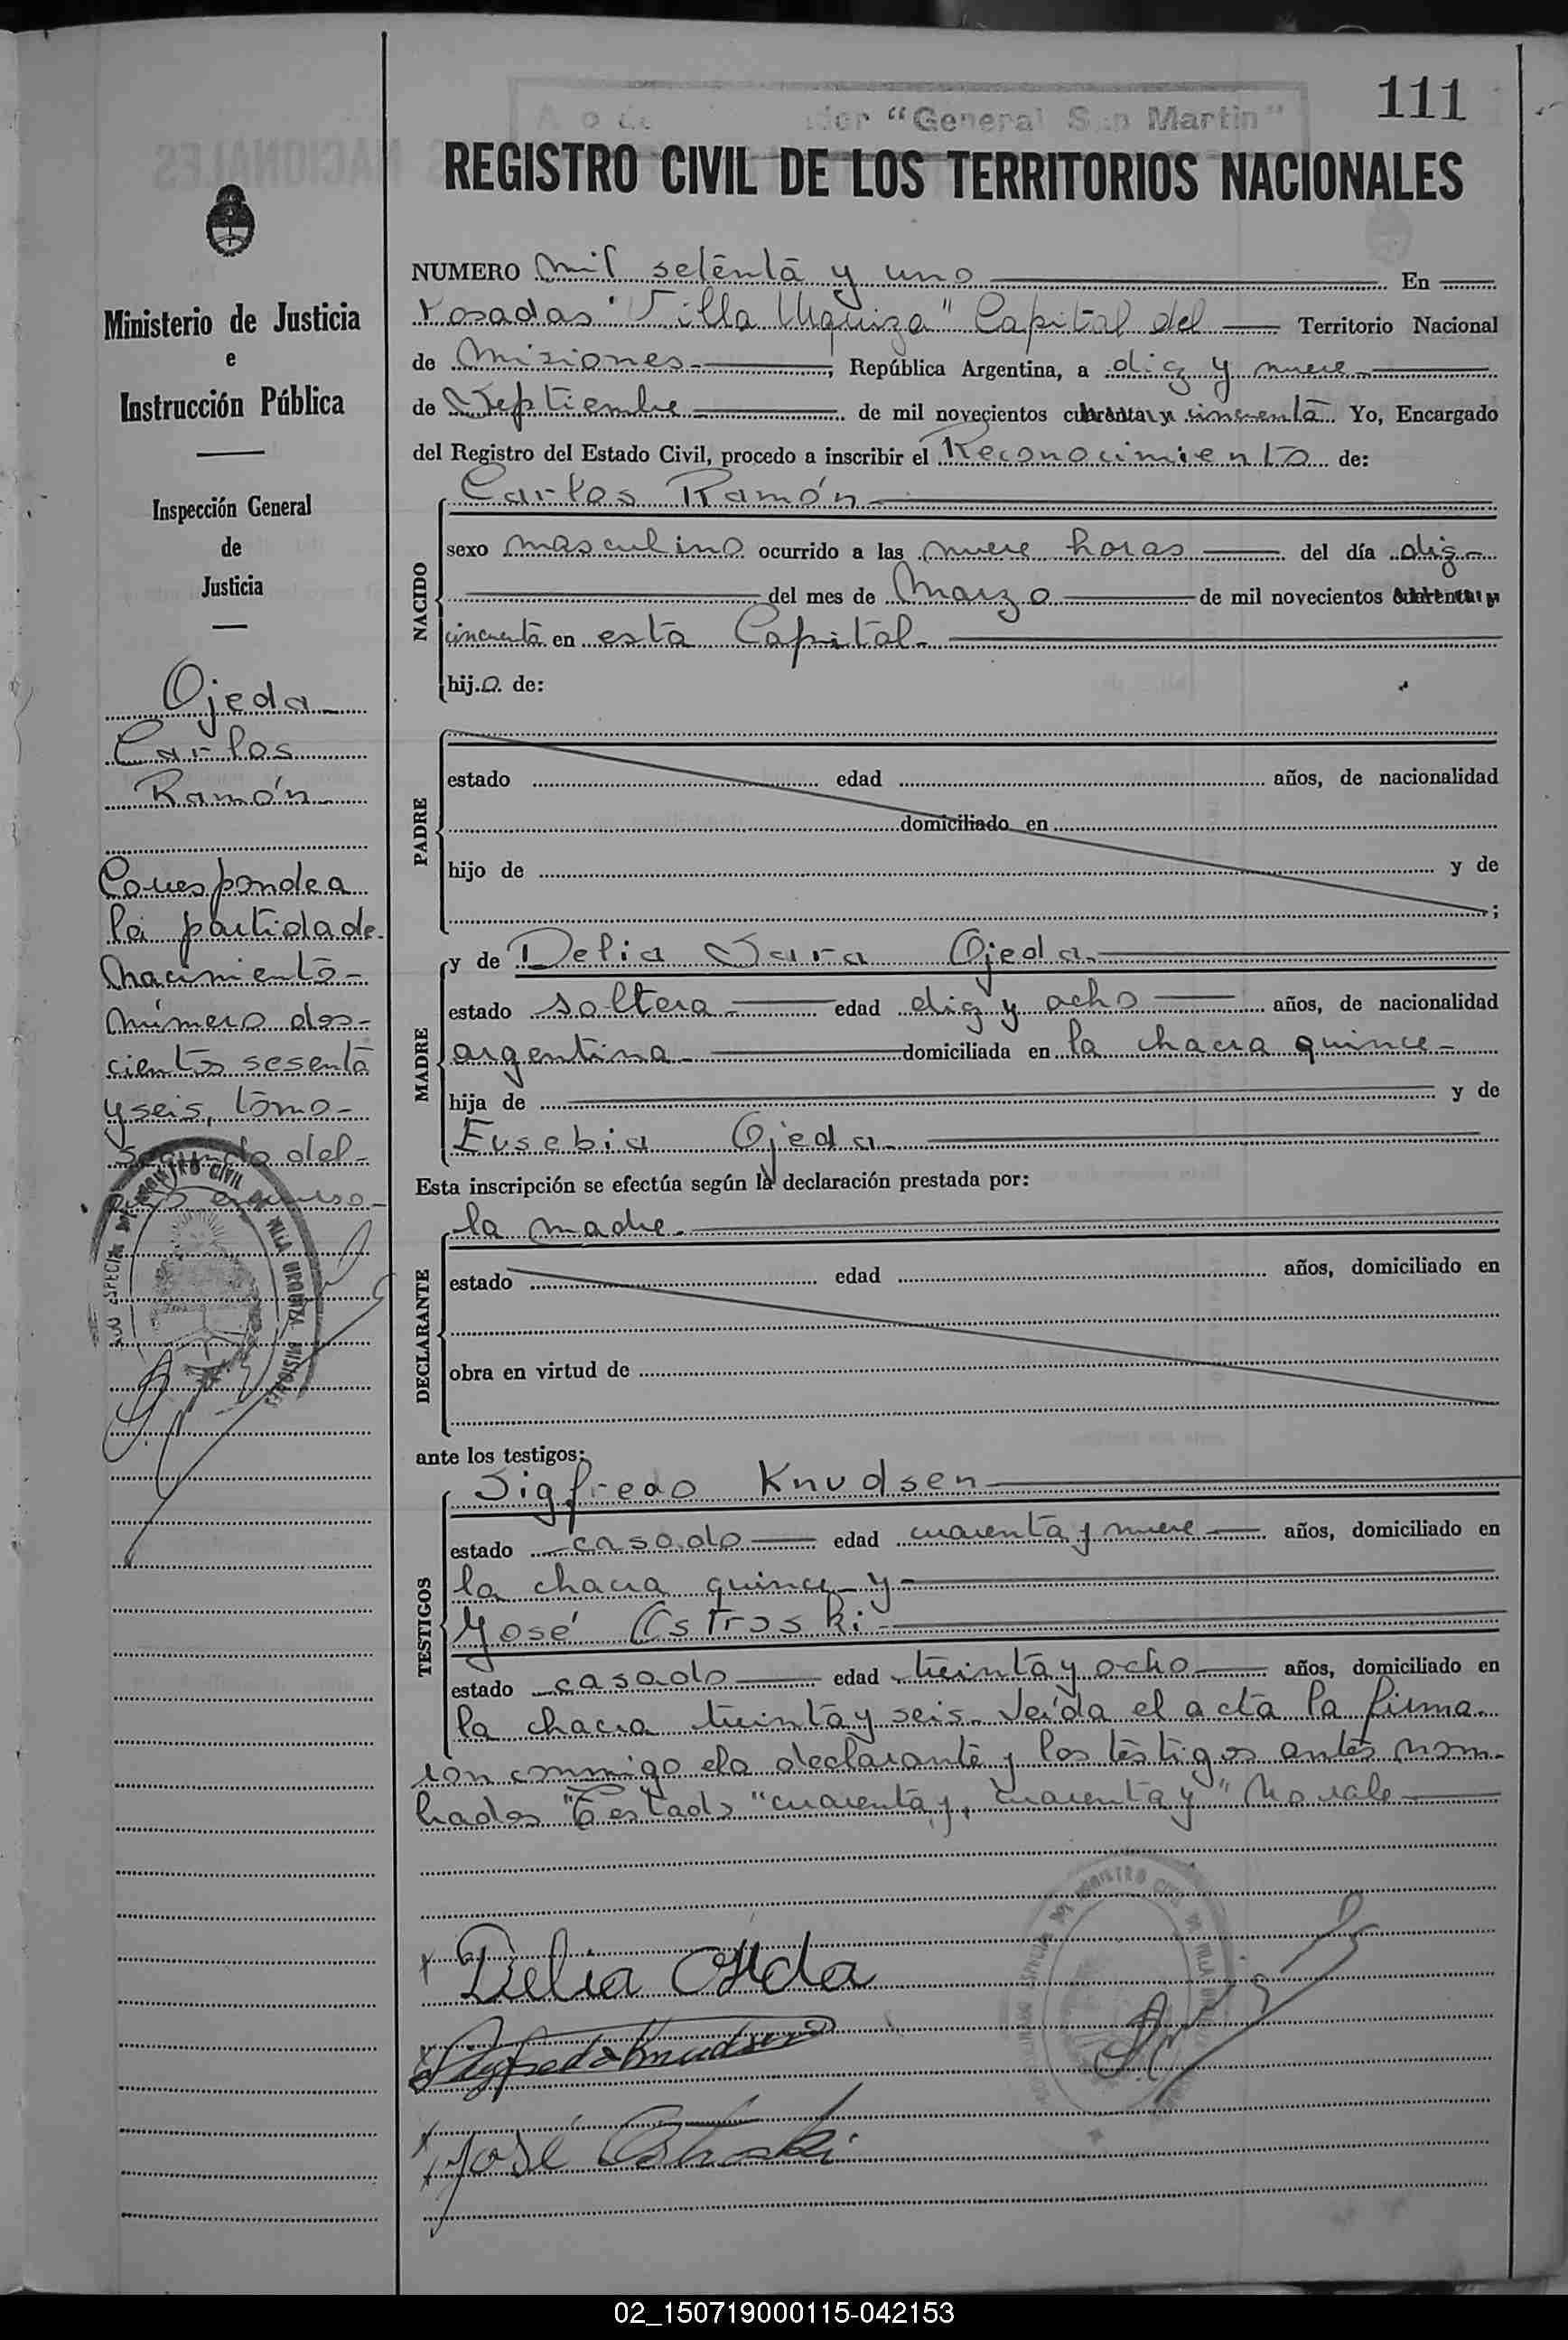 111
"General San Martin"
REGISTRO CIVIL DE LOS TERRITORIOS NACIONALES
Ministerio de Justicia
e
Instrucción Pública
Inspección General
de
Justicia
Ojeda
Carlos
Ramón
Corresponde a
la partida de
Nacimiento
número dos-
cientos sesenta
y seis, tomo
segundo del
NUMERO mil setenta y uno En
Posadas "Villa Urquiza" Capital del Territorio Nacional
de Misiones, República Argentina, a diez y nueve
de Septiembre de mil novecientos cuarenta y cincuenta Yo, Encargado
del Registro del Estado Civil, procedo a inscribir el Reconocimiento de:
NACIDO
Carlos Ramón
sexo masculino ocurrido a las nueve horas del día diez
del mes de Marzo de mil novecientos cuarenta y
cincuenta en esta Capital
hijo de:
PADRE
estado edad años, de nacionalidad
domiciliado en
hijo de y de
;
MADRE
y de Delia Sara Ojeda
estado soltera edad diez y ocho años, de nacionalidad
argentina domiciliada en la chacra quince
hija de y de
Eusebia Ojeda
Esta inscripción se efectúa según la declaración prestada por:
DECLARANTE
la madre
estado edad años, domiciliado en
obra en virtud de
ante los testigos:
TESTIGOS
Sigfredo Knudsen
estado casado edad cuarenta y nueve años, domiciliado en
la chacra quince y
José Ostroski
estado casado edad treinta y ocho años, domiciliado en
la chacra treinta y seis. Leída el acta la firma-
ron conmigo la declarante y los testigos antes nom-
brados "Testado "cuarenta y, cuarenta y" No vale
x Delia Ojeda
x Sigfredo Knudsen
x José Ostroski
REGISTRO CIVIL VILLA URQUIZA MISIONES
02_150719000115-042153